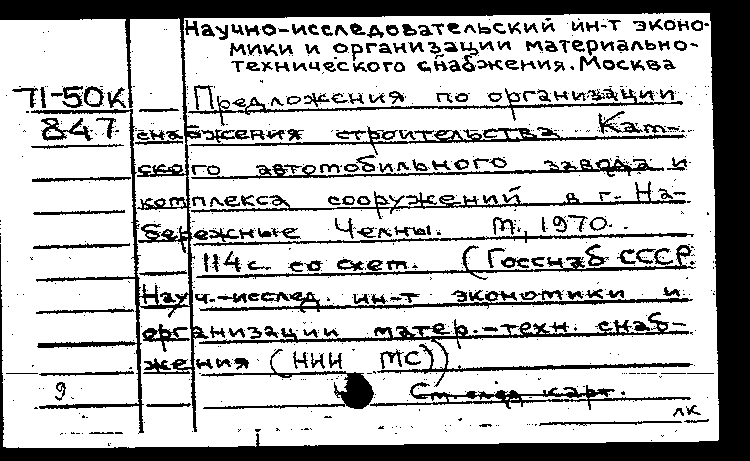 Научно-исследовательский ин-т эконо-
мики и организации материально-
технического снабжения. Москва
71-50К
847
Предложения по организации
снабжения строительства Кам-
ского автомобильного завода и
комплекса сооружений в г. На-
бережные Челны. М., 1970.
114 с. со схем. (Госснаб СССР.
Науч.-исслед. ин-т экономики и
организации матер.-техн. снаб-
жения (НИИ МС)).
9
См. след. карт.
лк